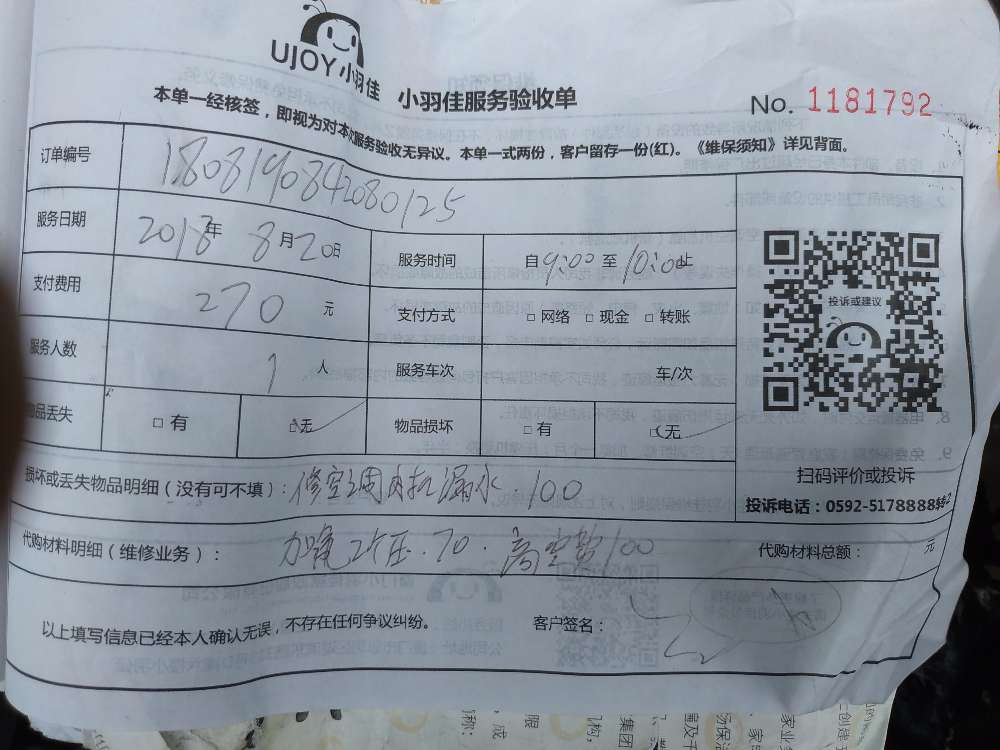 UJOY小羽佳
小羽佳服务验收单
No. 1181792
本单一经核签，即视为对本次服务验收无异议。本单一式两份，客户留存一份(红)。《维保须知》详见背面。
订单编号 1808190842080125
服务日期 2018年 8月20日 服务时间 自9:00至10:00止
支付费用 270 元 支付方式 □网络 □现金 □转账
投诉或建议
服务人数 1 人 服务车次 车/次
物品丢失 □有 □无 物品损坏 □有 □无
扫码评价或投诉
损坏或丢失物品明细（没有可不填）：修空调内机漏水 100
投诉电话：0592-5178888转2
代购材料明细（维修业务）： 力 2个压.70.高空费100 代购材料总额： 元
以上填写信息已经本人确认无误，不存在任何争议纠纷。 客户签名：